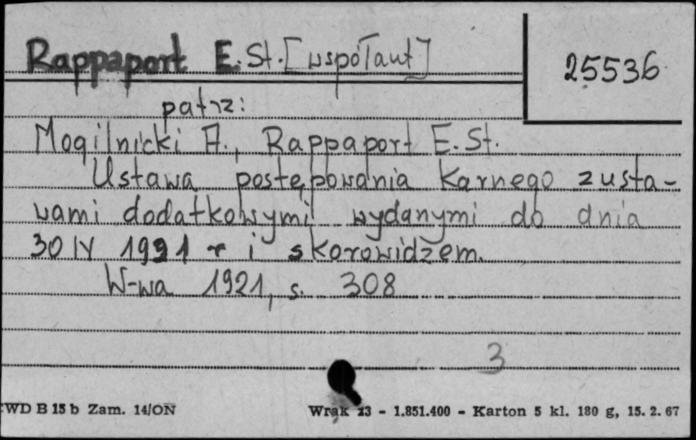 Rappaport E. St. [współaut]
25536
patrz:
Mogilnicki A., Rappaport E. St.
Ustawa postępowania karnego z usta-
wami dodatkowymi wydanymi do dnia
30 IV 1921 r i skorowidzem.
W-wa 1921, s. 308
3
WD B 15 b Zam. 14/ON
Wrak 23 - 1.851.400 - Karton 5 kl. 180 g, 15. 2. 67